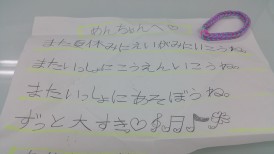 めんちゃんへ
また夏休みにえいがみにいこうね。
またいっしょにこうえんいこうね。
またいっしょにあそぼうね。
ずっと大すき♡